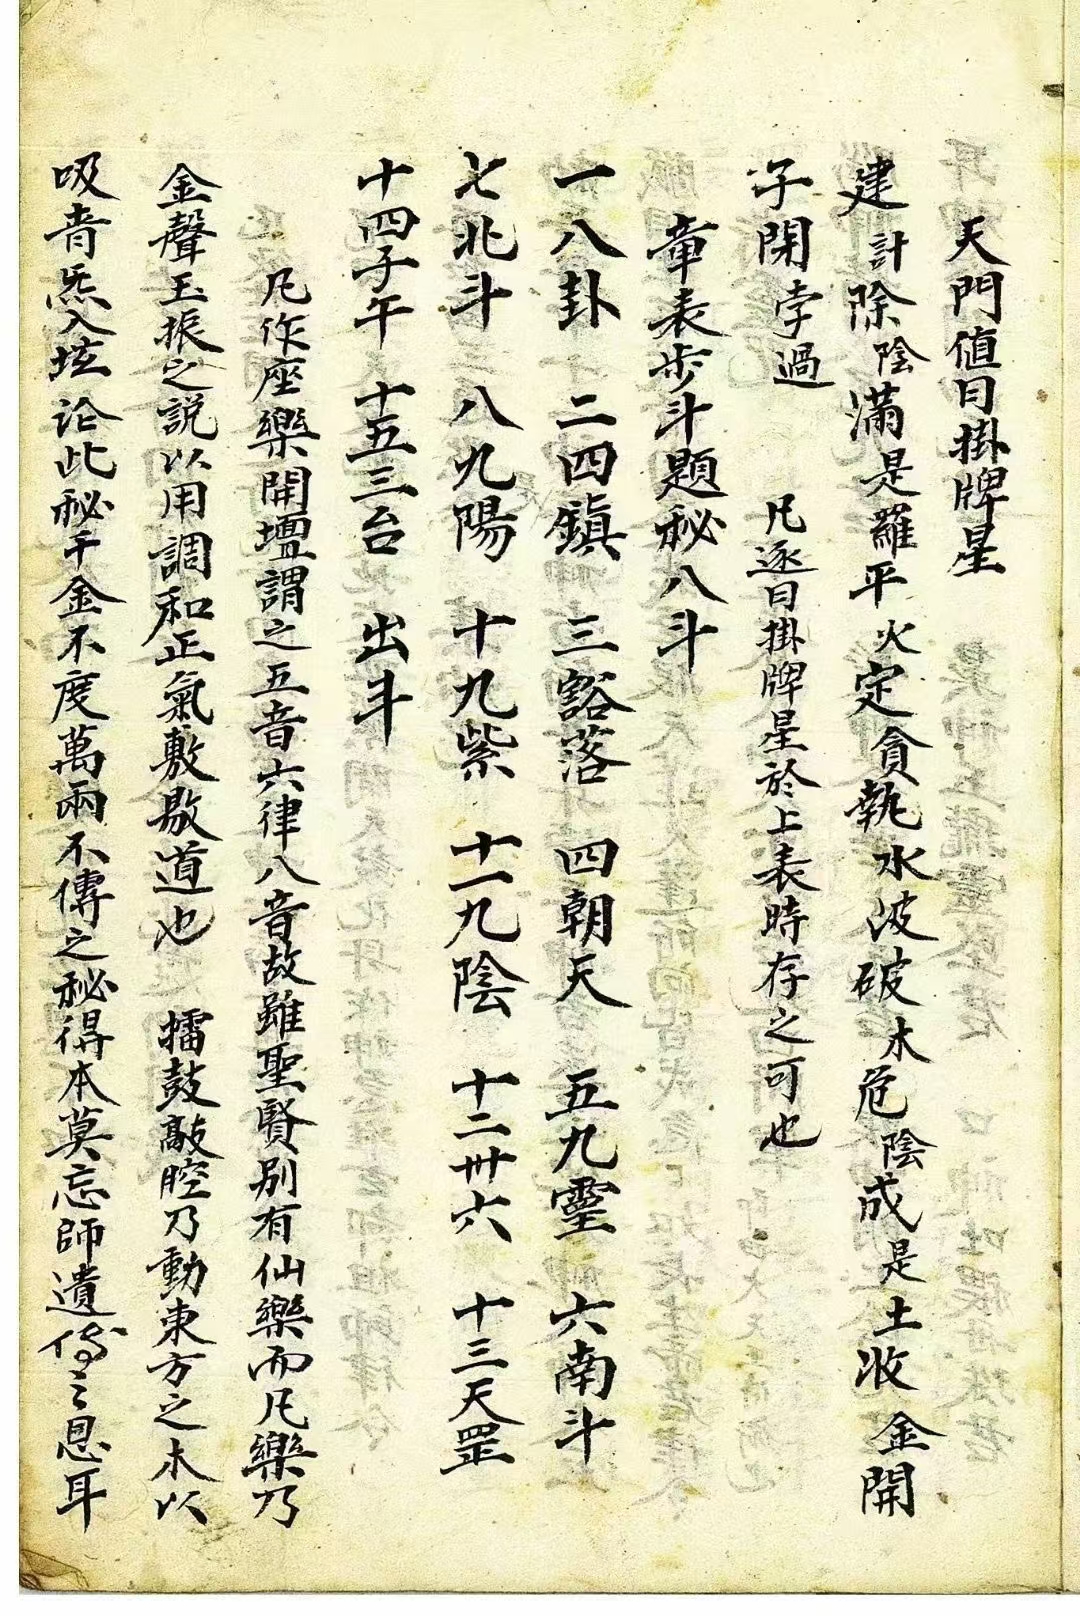 天門值日掛牌星
建計除陰滿是羅平火定貪執水波破木危陰成是土收金開
子閉孛過　凡逐日掛牌星於上表時存之可也
章表步斗題秘八斗
一八卦　二四鎮　三豁落　四朝天　五九靈　六南斗
七北斗　八九陽　十九紫　十一九陰　十二卅六　十三天罡
十四子午　十五三台　出斗
凡作座樂開壇謂之五音六律八音故雖聖賢別有仙樂而凡樂乃
金聲玉振之說以用調和正氣敷敭道也　擂鼓敲腔乃動東方之木以
吸音炁入坛论此秘千金不度萬兩不傳之秘得本莫忘師遺傳之恩耳